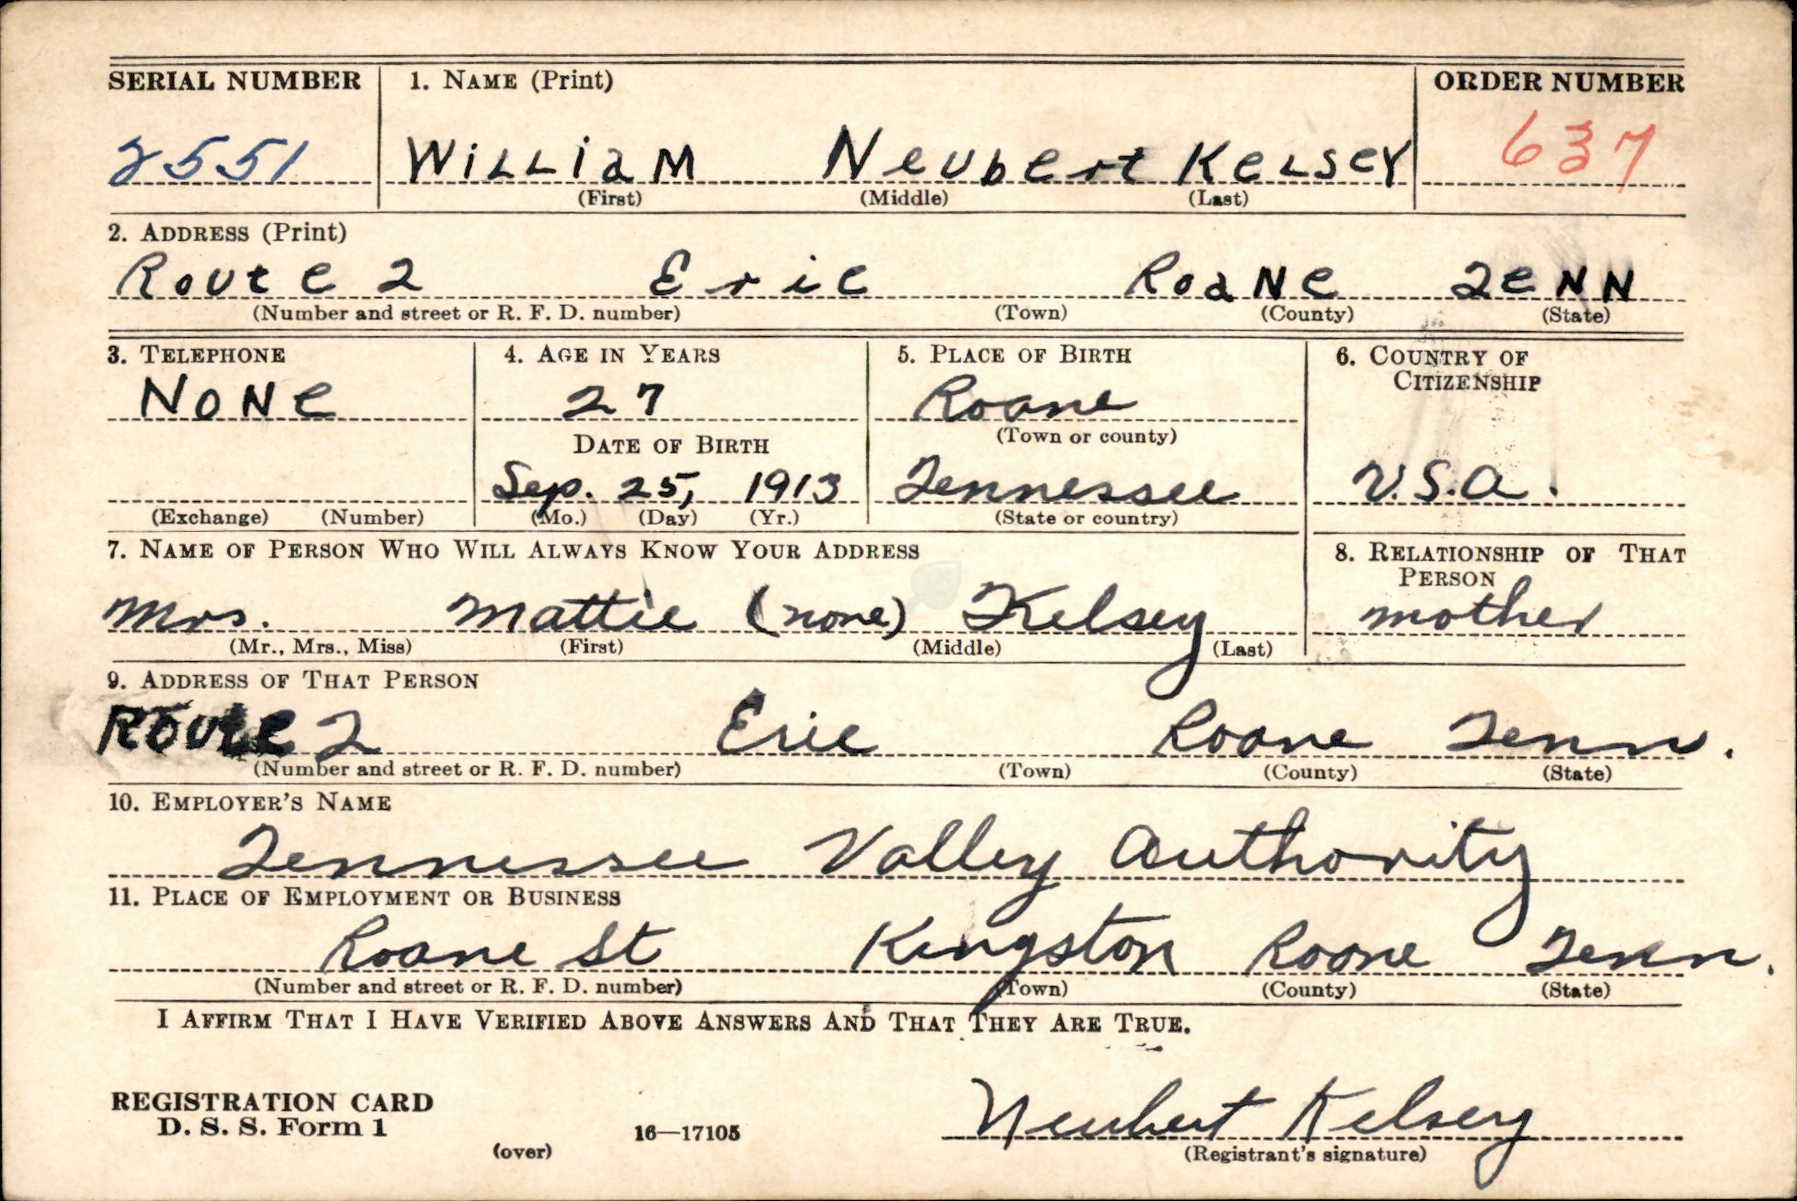 SERIAL NUMBER 1. NAME (Print) ORDER NUMBER
2551 WiLLiaM Neubert KeLSeY 637
(First) (Middle) (Last)
2. ADDRESS (Print)
Route 2 Erie Roane TeNN
(Number and street or R. F. D. number) (Town) (County) (State)
3. TELEPHONE 4. AGE IN YEARS 5. PLACE OF BIRTH 6. COUNTRY OF CITIZENSHIP
NoNe 27 Roane
DATE OF BIRTH (Town or county)
Sep. 25, 1913 Tennessee U.S.A.
(Exchange) (Number) (Mo.) (Day) (Yr.) (State or country)
7. NAME OF PERSON WHO WILL ALWAYS KNOW YOUR ADDRESS 8. RELATIONSHIP OF THAT PERSON
Mrs. Mattie (none) Kelsey mother
(Mr., Mrs., Miss) (First) (Middle) (Last)
9. ADDRESS OF THAT PERSON
Route 2 Erie Roane Tenn.
(Number and street or R. F. D. number) (Town) (County) (State)
10. EMPLOYER'S NAME
Tennessee Valley Authority
11. PLACE OF EMPLOYMENT OR BUSINESS
Roane St Kingston Roane Tenn.
(Number and street or R. F. D. number) (Town) (County) (State)
I AFFIRM THAT I HAVE VERIFIED ABOVE ANSWERS AND THAT THEY ARE TRUE.
REGISTRATION CARD
D. S. S. Form 1
(over) 16—17105 Neubert Kelsey
(Registrant's signature)